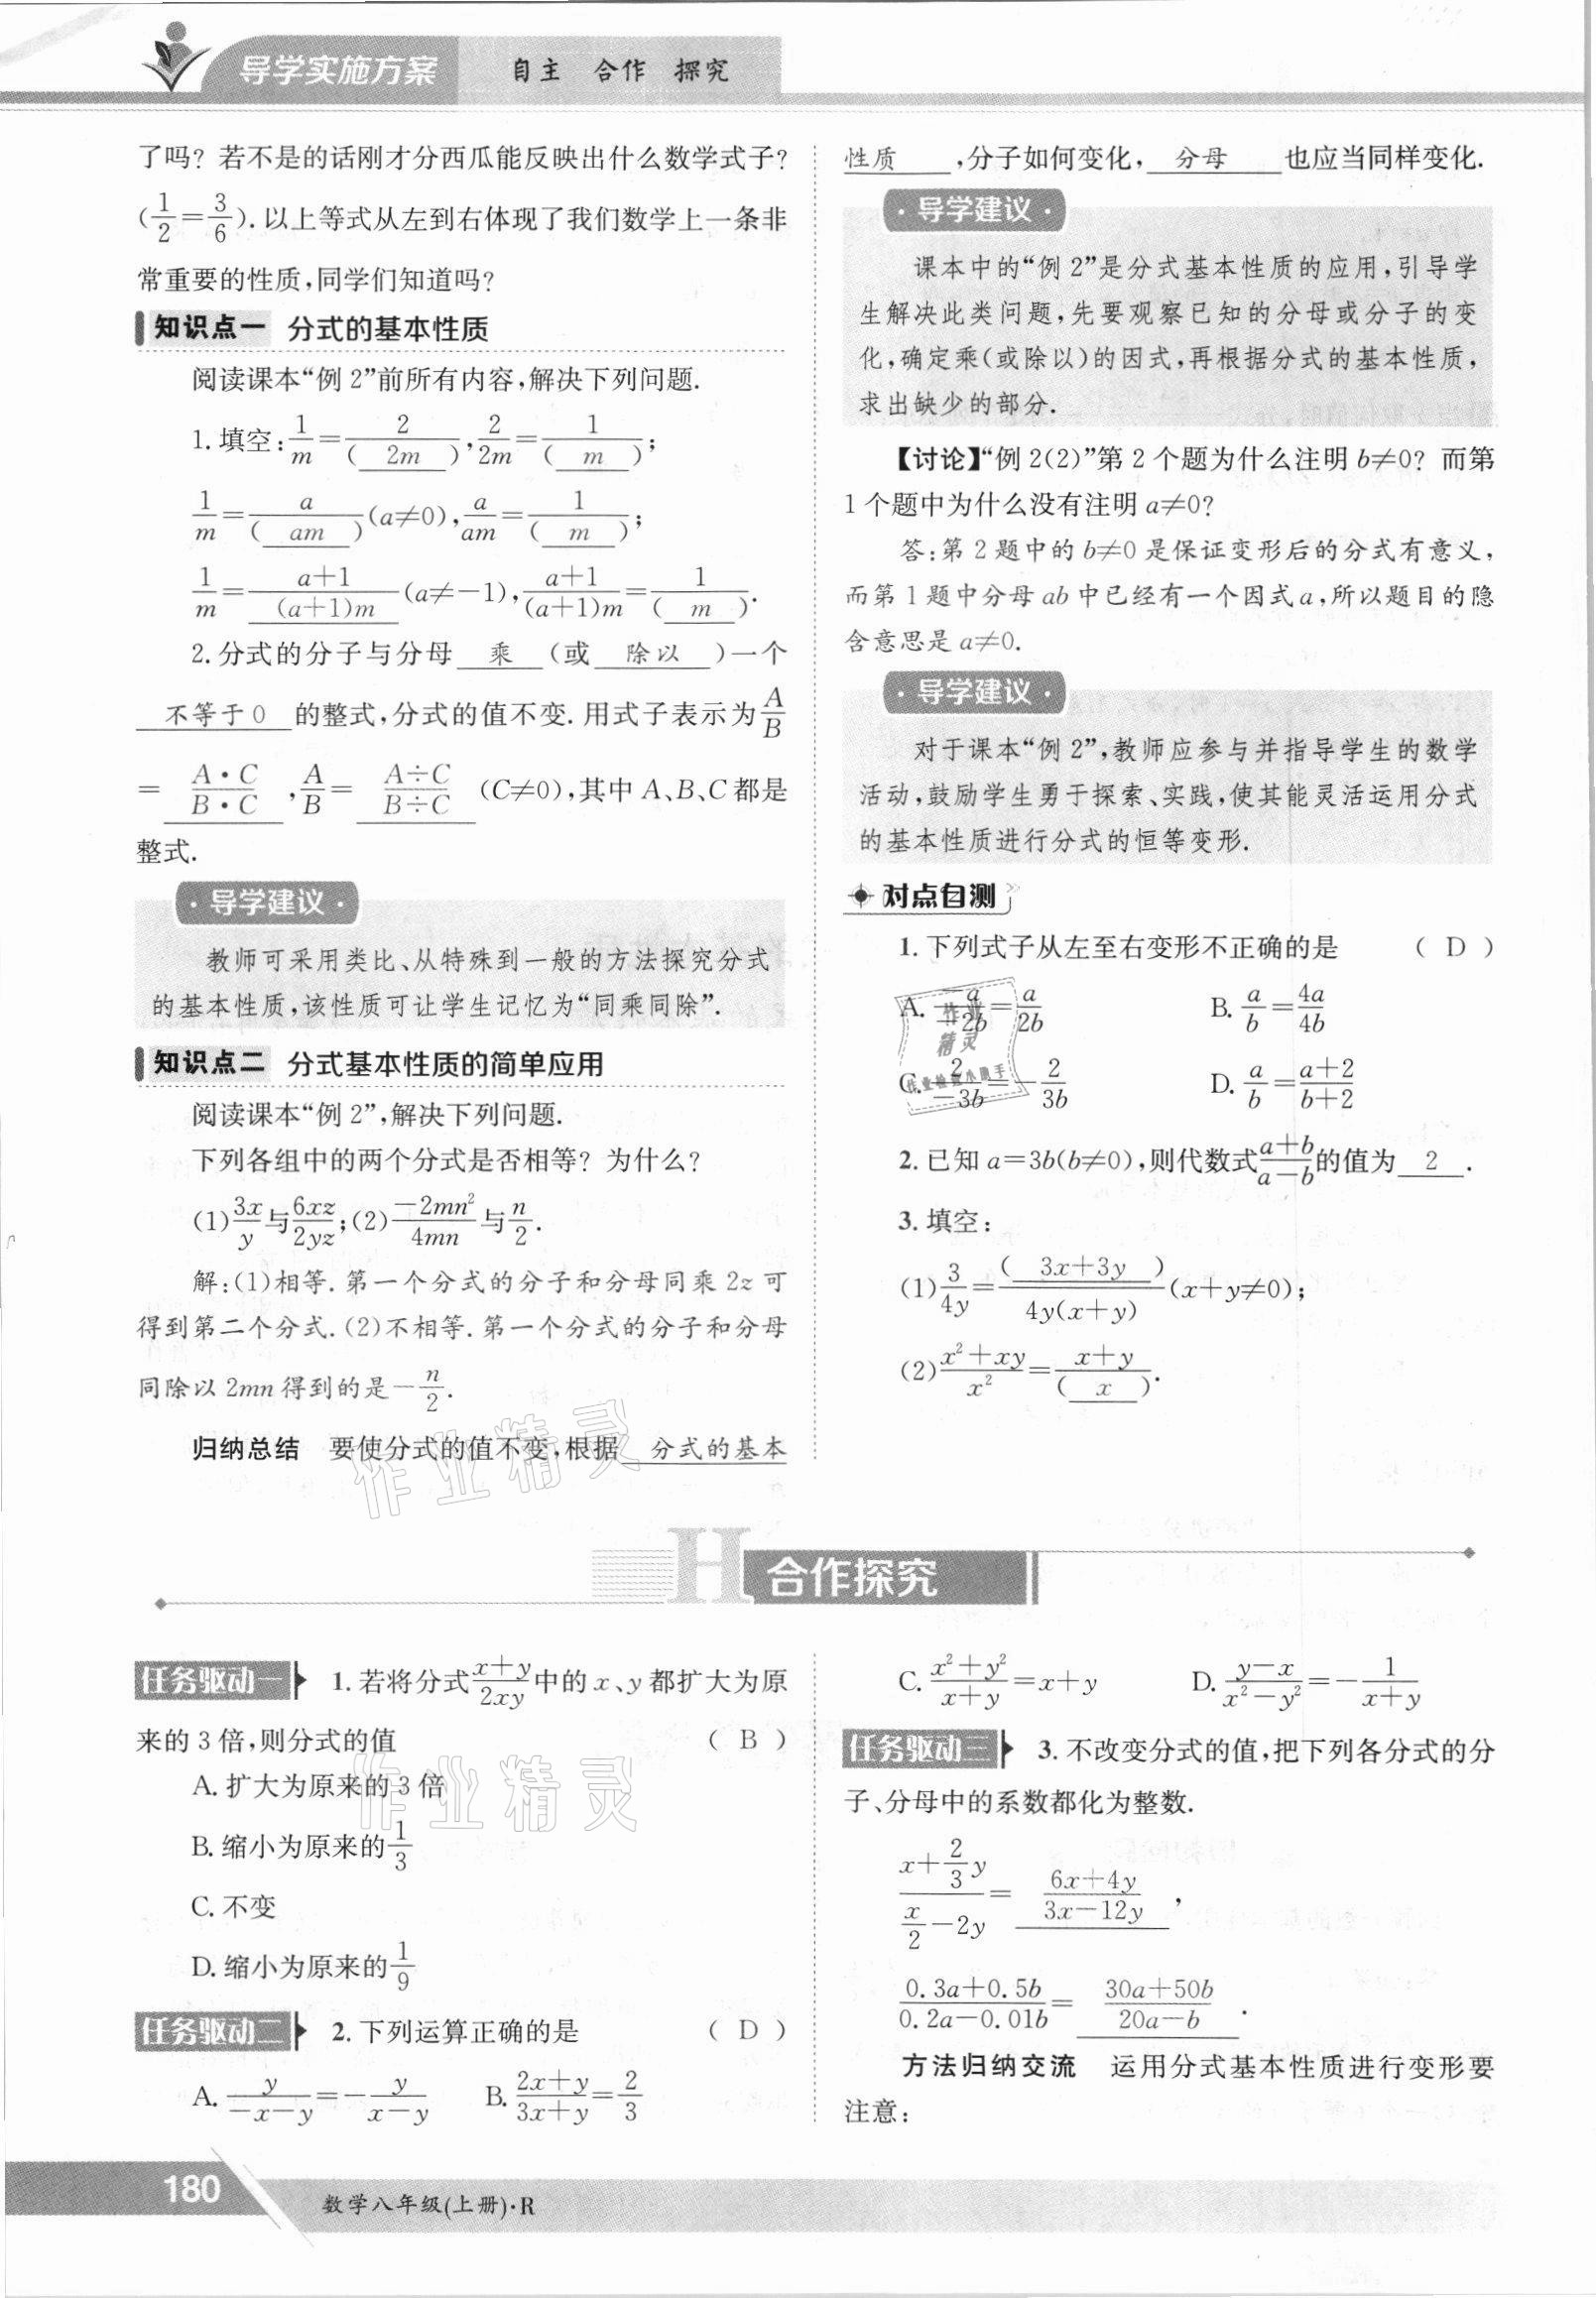 导学实施方案 自主 合作 探究
了吗？若不是的话刚才分西瓜能反映出什么数学式子？
(1/2=3/6).以上等式从左到右体现了我们数学上一条非
常重要的性质,同学们知道吗？
知识点一 分式的基本性质
阅读课本“例 2”前所有内容,解决下列问题.
1.填空:1/m=2/( 2m ),2/2m=1/( m );
1/m=a/( am )(a≠0),a/am=1/( m );
1/m=(a+1)/((a+1)m)(a≠-1),(a+1)/((a+1)m)=1/( m ).
2.分式的分子与分母 乘 (或 除以 )一个
不等于0 的整式,分式的值不变.用式子表示为A/B
= (A·C)/(B·C) ,A/B= (A÷C)/(B÷C) (C≠0),其中 A、B、C 都是
整式.
·导学建议·
教师可采用类比、从特殊到一般的方法探究分式
的基本性质,该性质可让学生记忆为“同乘同除”.
知识点二 分式基本性质的简单应用
阅读课本“例 2”,解决下列问题.
下列各组中的两个分式是否相等？为什么？
(1)3x/y与6xz/2yz;(2)-2mn²/4mn与n/2.
解:(1)相等.第一个分式的分子和分母同乘 2z 可
得到第二个分式.(2)不相等.第一个分式的分子和分母
同除以 2mn 得到的是-n/2.
归纳总结 要使分式的值不变,根据 分式的基本
性质 ,分子如何变化, 分母 也应当同样变化.
·导学建议·
课本中的“例 2”是分式基本性质的应用,引导学
生解决此类问题,先要观察已知的分母或分子的变
化,确定乘(或除以)的因式,再根据分式的基本性质,
求出缺少的部分.
【讨论】“例 2(2)”第 2 个题为什么注明 b≠0？而第
1 个题中为什么没有注明 a≠0？
答:第 2 题中的 b≠0 是保证变形后的分式有意义,
而第 1 题中分母 ab 中已经有一个因式 a,所以题目的隐
含意思是 a≠0.
·导学建议·
对于课本“例 2”,教师应参与并指导学生的数学
活动,鼓励学生勇于探索、实践,使其能灵活运用分式
的基本性质进行分式的恒等变形.
对点自测
1.下列式子从左至右变形不正确的是 ( D )
A.-a/-2b=a/2b B.a/b=4a/4b
C.2/-3b=-2/3b D.a/b=(a+2)/(b+2)
2.已知 a=3b(b≠0),则代数式(a+b)/(a-b)的值为 2 .
3.填空:
(1)3/4y=( 3x+3y )/4y(x+y)(x+y≠0);
(2)(x²+xy)/x²=(x+y)/( x ).
作业精灵
作业检查小助手
作业精灵
H 合作探究
任务驱动一 1.若将分式(x+y)/2xy中的 x、y 都扩大为原
来的 3 倍,则分式的值 ( B )
A.扩大为原来的 3 倍
作业精灵
B.缩小为原来的1/3
C.不变
D.缩小为原来的1/9
任务驱动二 2.下列运算正确的是 ( D )
A.y/(-x-y)=-y/(x-y) B.(2x+y)/(3x+y)=2/3
C.(x²+y²)/(x+y)=x+y D.(y-x)/(x²-y²)=-1/(x+y)
任务驱动三 3.不改变分式的值,把下列各分式的分
子、分母中的系数都化为整数.
(x+2/3y)/(x/2-2y)= (6x+4y)/(3x-12y) ,
(0.3a+0.5b)/(0.2a-0.01b)= (30a+50b)/(20a-b) .
方法归纳交流 运用分式基本性质进行变形要
注意:
180 数学八年级(上册)·R